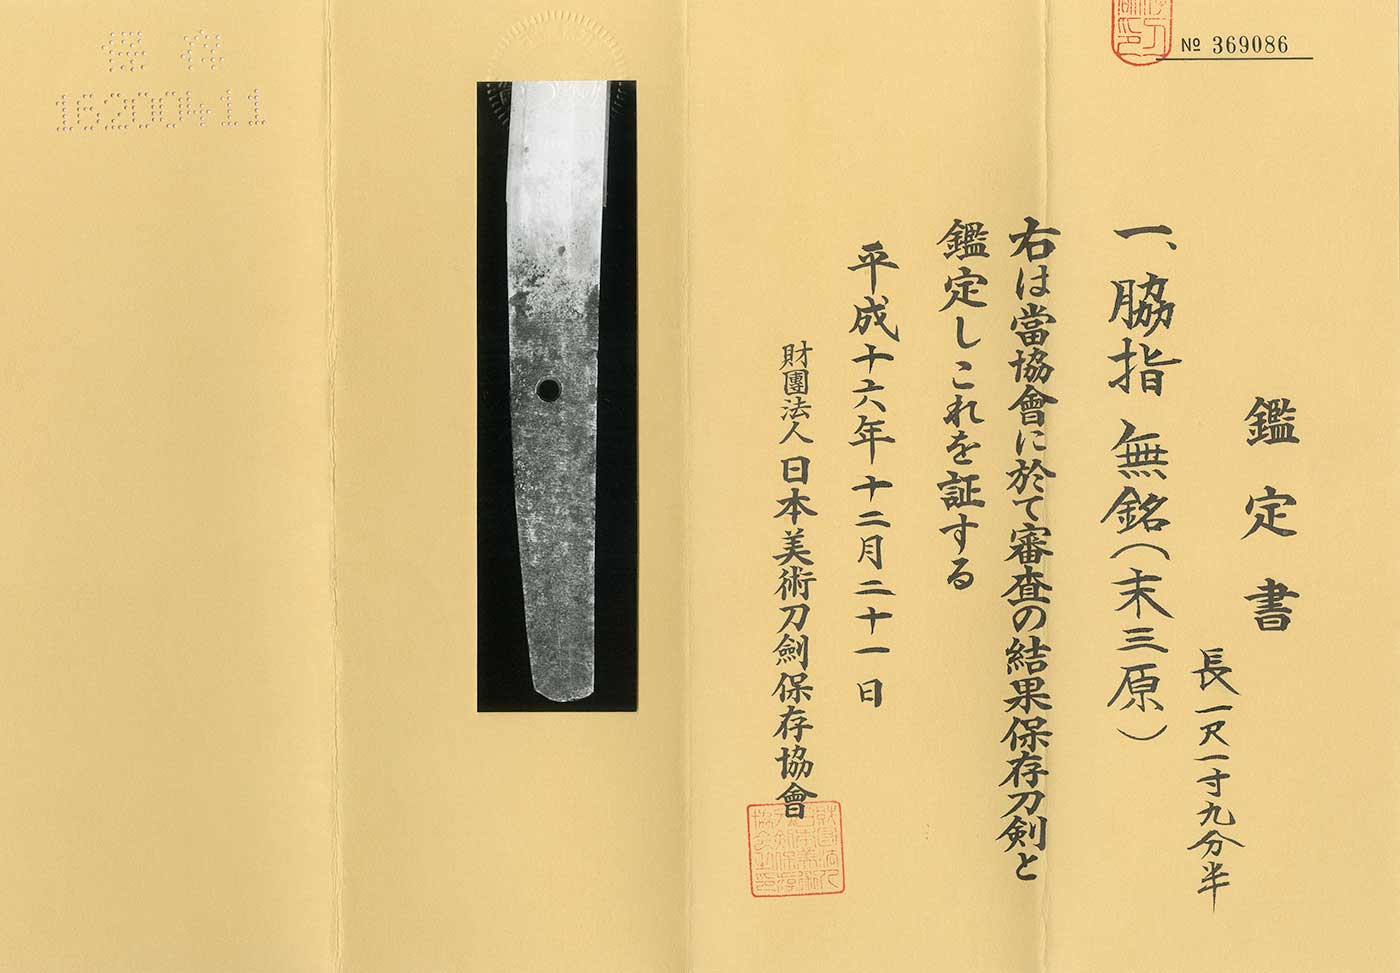 No 369086
鑑定書
長一尺一寸九分半
一、脇指 無銘（末三原）
右は當協會に於て審査の結果保存刀剣と
鑑定しこれを証する
平成十六年十二月二十一日
財團法人 日本美術刀劍保存協會
保存
16200411